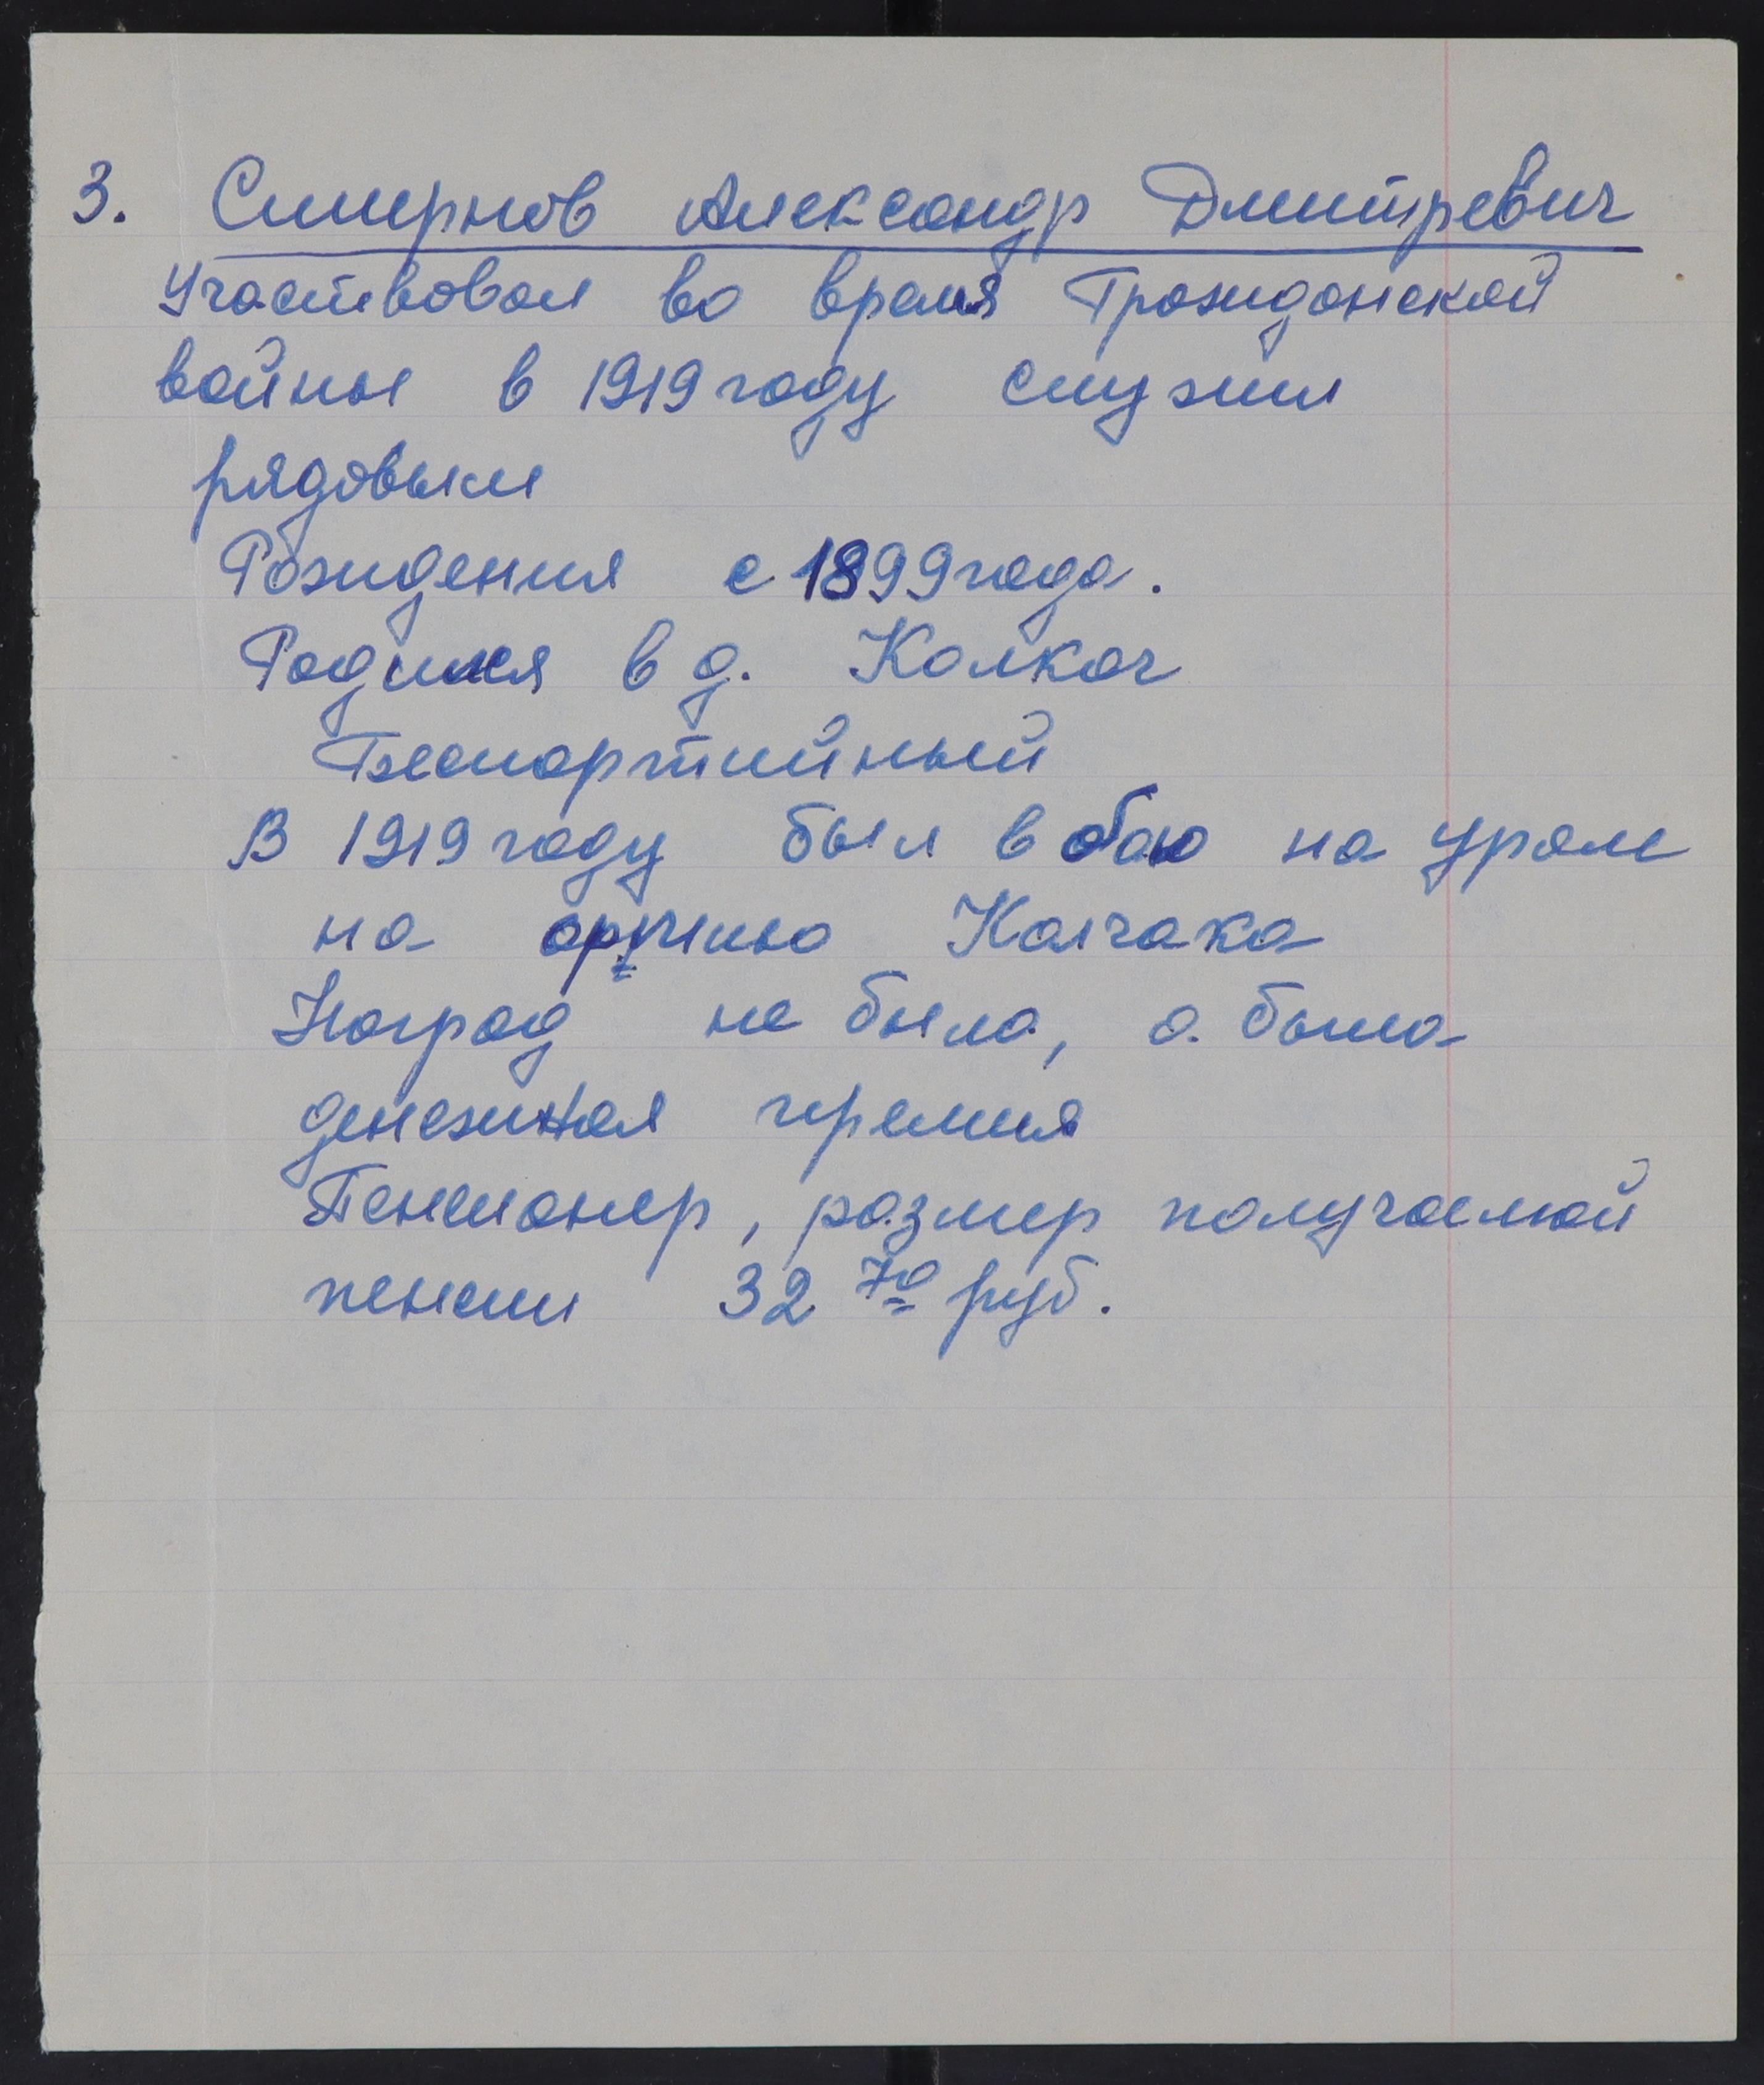 3. Смирнов Александр Дмитревич
Участвовал во время Гражданской
войны в 1919 году служил
рядовым
Рождения с 1899 года.
Родился в д. Калкач
Беспартийный
В 1919 году был в бою на урал
на армию Колчака
Наград не было, а была
денежная премия
Пенсионер, размер получаемой
пенсии 32 70 руб.